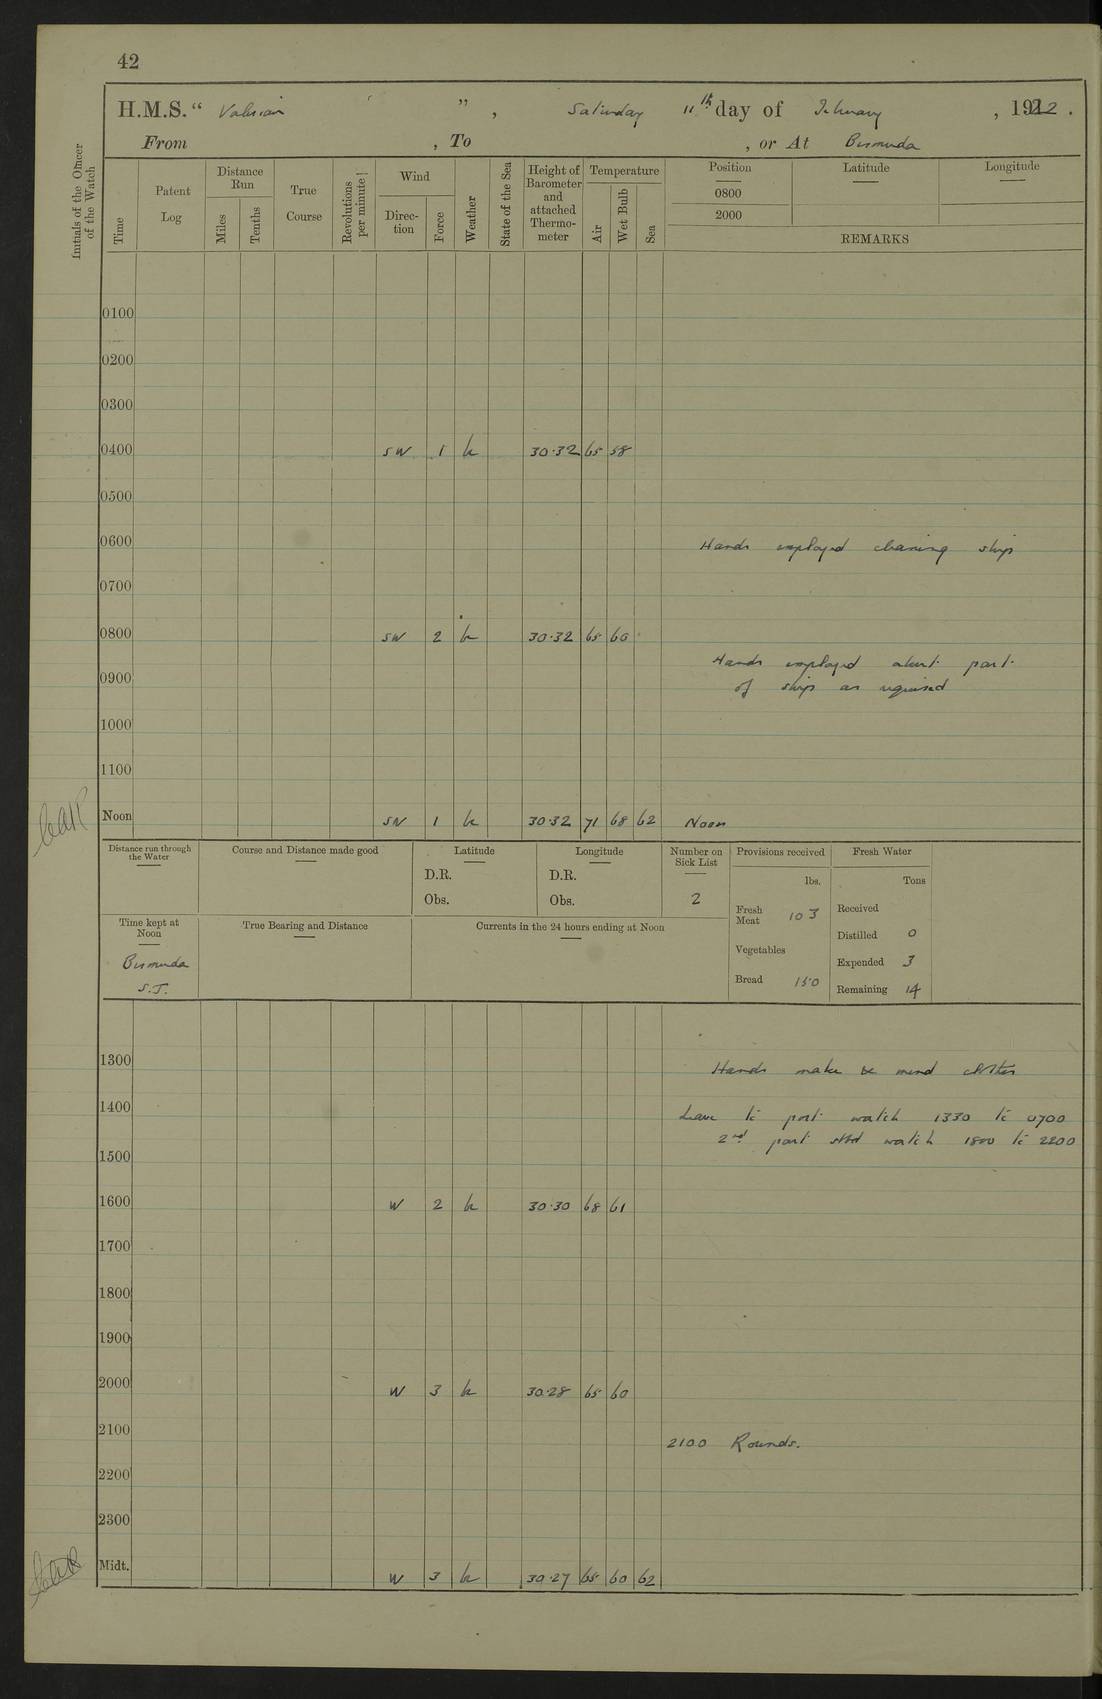 42
H.M.S. “ Valerian ” , Saturday 11th day of February , 1922 .
From , To , or At Bermuda
Initials of the Officer of the Watch
Time
Patent Log
Distance Run
Miles
Tenths
True Course
Revolutions per minute
Wind
Direc- tion
Force
Weather
State of the Sea
Height of Barometer and attached Thermo- meter
Temperature
Air
Wet Bulb
Sea
Position
Latitude
Longitude
0800
2000
REMARKS
0100
0200
0300
0400 SW 1 30.32 65 58
0500
0600 Hands employed cleaning ship
0700
0800 SW 2 30.32 65 60
Hands employed about part
0900 of ship as required
1000
1100
Noon SW 1 30.32 71 68 62 Noon
Distance run through the Water
Course and Distance made good
Latitude
D.R.
Obs.
Longitude
D.R.
Obs.
Number on Sick List
2
Provisions received
lbs.
Fresh Meat 103
Vegetables
Bread 150
Fresh Water
Tons
Received
Distilled 0
Expended 3
Remaining 14
Time kept at Noon
Bermuda
S.T.
True Bearing and Distance
Currents in the 24 hours ending at Noon
1300 Hands make & mend clothes
1400 Leave to port watch 1330 to 0700
2nd part stbd watch 1800 to 2200
1500
1600 W 2 30.30 68 61
1700
1800
1900
2000 W 3 30.28 65 60
2100 2100 Rounds.
2200
2300
Midt. W 3 30.27 65 60 62